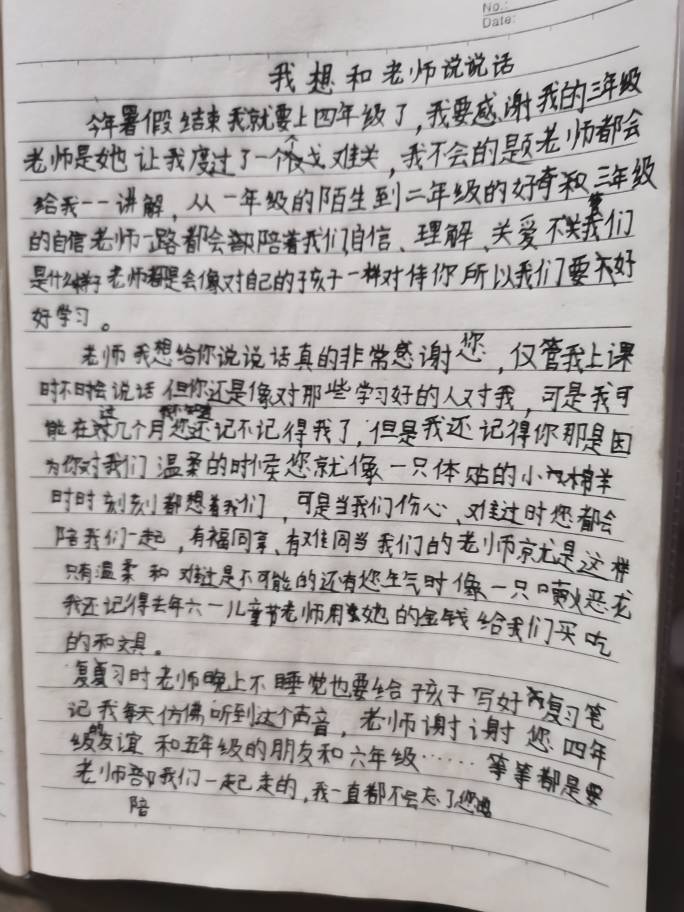 No.:
Date:
我想和老师说说话
今年暑假结束我就要上四年级了，我要感谢我的三年级
老师是她让我度过了一个个难关，我不会的是题老师都会
给我一一讲解，从一年级的陌生到二年级的好奇和三年级
的自信老师一路都会陪着我们自信、理解、关爱不关我们
是什么样子老师都是会像对自己的孩子一样对待你所以我们要天好
好学习。
老师我想给你说说话真的非常感谢您，仅管我上课
时不时会说话但你还是像对那些学习好的人对我，可是我可
能在过几个月您还记不记得我了，但是我还记得你那是因
为你对我们温柔的时候您就像一只体贴的小绵羊
时时刻刻都想着我们，可是当我们伤心、难过时您都会
陪我们一起，有福同享、有难同当我们的老师就是这样
只有温柔和难过是不可能的还有您生气时像一只喷火恶龙
我还记得去年六一儿童节老师用她的金钱给我们买吃
的和文具。
复习时老师晚上不睡觉也要给孩子写好复习笔
记我每天仿佛听到这个声音，老师谢谢您四年
级的友谊和五年级的朋友和六年级……等等都是要
老师陪我们一起走的，我一直都不会忘了您